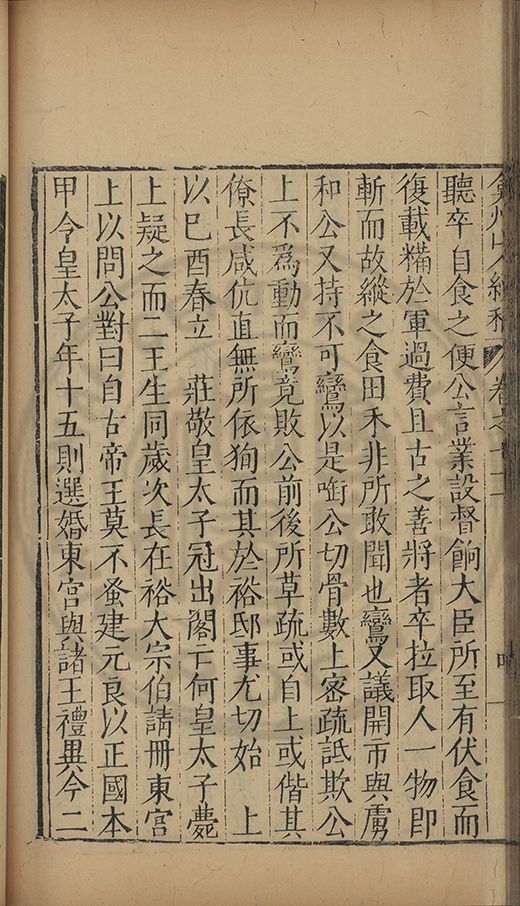 弇州山人續稿 卷之
聽卒自食之便公言業設督餉大臣所至有伏食而
復載糒於軍過費且古之善將者卒拉取人一物即
斬而故縱之食田禾非所敢聞也鸞又議開市與虜
和公又持不可鸞以是啣公切骨數上密疏詆欺公
上不為動而鸞竟敗公前後所草疏或自上或偕其
僚長咸伉直無所依狥而其於裕邸事尤切始 上
以巳酉春立 莊敬皇太子冠出閣亡何皇太子薨
上疑之而二王生同歲次長在裕大宗伯請冊東宮
上以問公對曰自古帝王莫不蚤建元良以正國本
甲令皇太子年十五則選婚東宮與諸王禮異今二